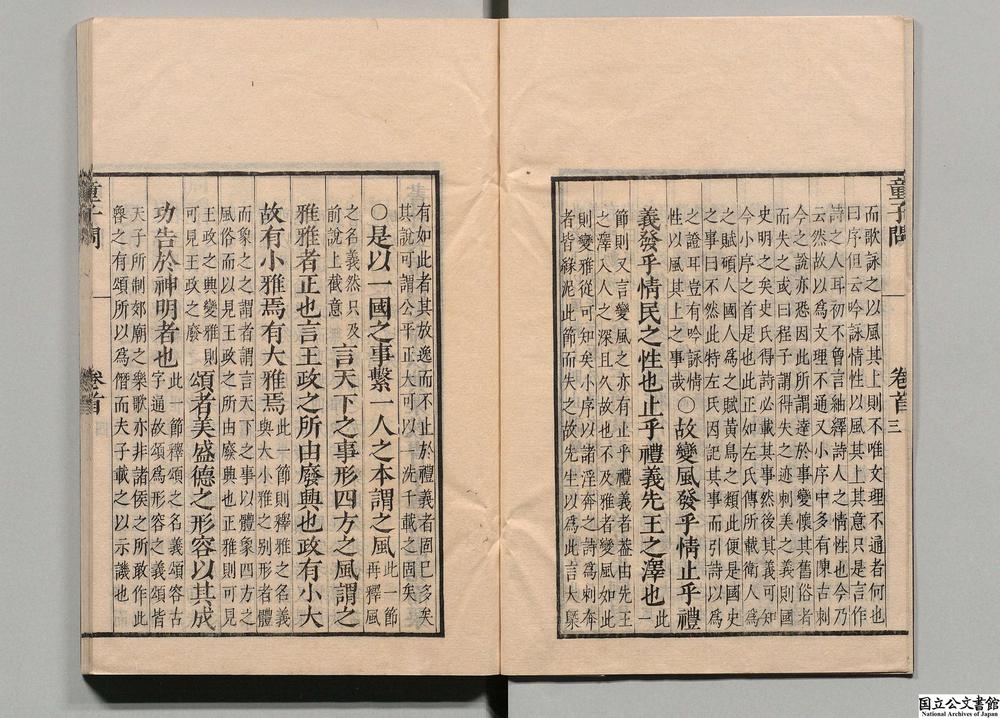 童子問
卷首
三
而歌詠之以風其上則不唯文理不通者何也
曰序但云吟詠情性以風其上其意只是言作
詩之人耳初不曾言紬繹詩人之情性也今乃
云然故以爲文理不通又小序中多有陳古刺
今之說亦恐因此所謂達於事變懷其舊俗者
而失之或曰程子謂得失之迹刺美之義則國
史明之矣史氏得詩必載其事然後其義可知
今小序之首是也此正如左氏傳所載衛人爲
之賦碩人國人爲之賦黃鳥之類此便是國史
之事曰不然此特左氏因記其事而引詩以爲
之證耳豈有吟詠情
性以風其上之事哉
〇故變風發乎情止乎禮
義發乎情民之性也止乎禮義先王之澤也
此一
節則又言變風之亦有止乎禮義者葢由先王
之澤入人之深且久故也不及雅者變風如此
則變雅從可知矣小序以諸淫奔之詩爲刺奔
者皆緣泥此節而失之故先生以爲此言大㮣
有如此者其放逸而不止於禮義者固已多矣
其說可謂公平正大可以一洗千載之固矣
〇是以一國之事繫一人之本謂之風
此一節
再釋風
之名義然只及
前說上截意
言天下之事形四方之風謂之
雅雅者正也言王政之所由廢興也政有小大
故有小雅焉有大雅焉
此一節則釋雅之名義
與大小雅之别形者體
而象之之謂者謂言天下之事以體象四方之
風俗而以見王政之所由廢興也正雅則可見
王政之典變雅則
可見王政之廢
頌者美盛德之形容以其成
功告於神明者也
此一節釋頌之名義頌容古
字通故頌爲形容之義頌皆
天子所制郊廟之樂歌亦非諸侯之所敢作此
魯之有頌所以爲僭而夫子載之以示譏也
童子問
卷首
国立公文書館
National Archives of Japan